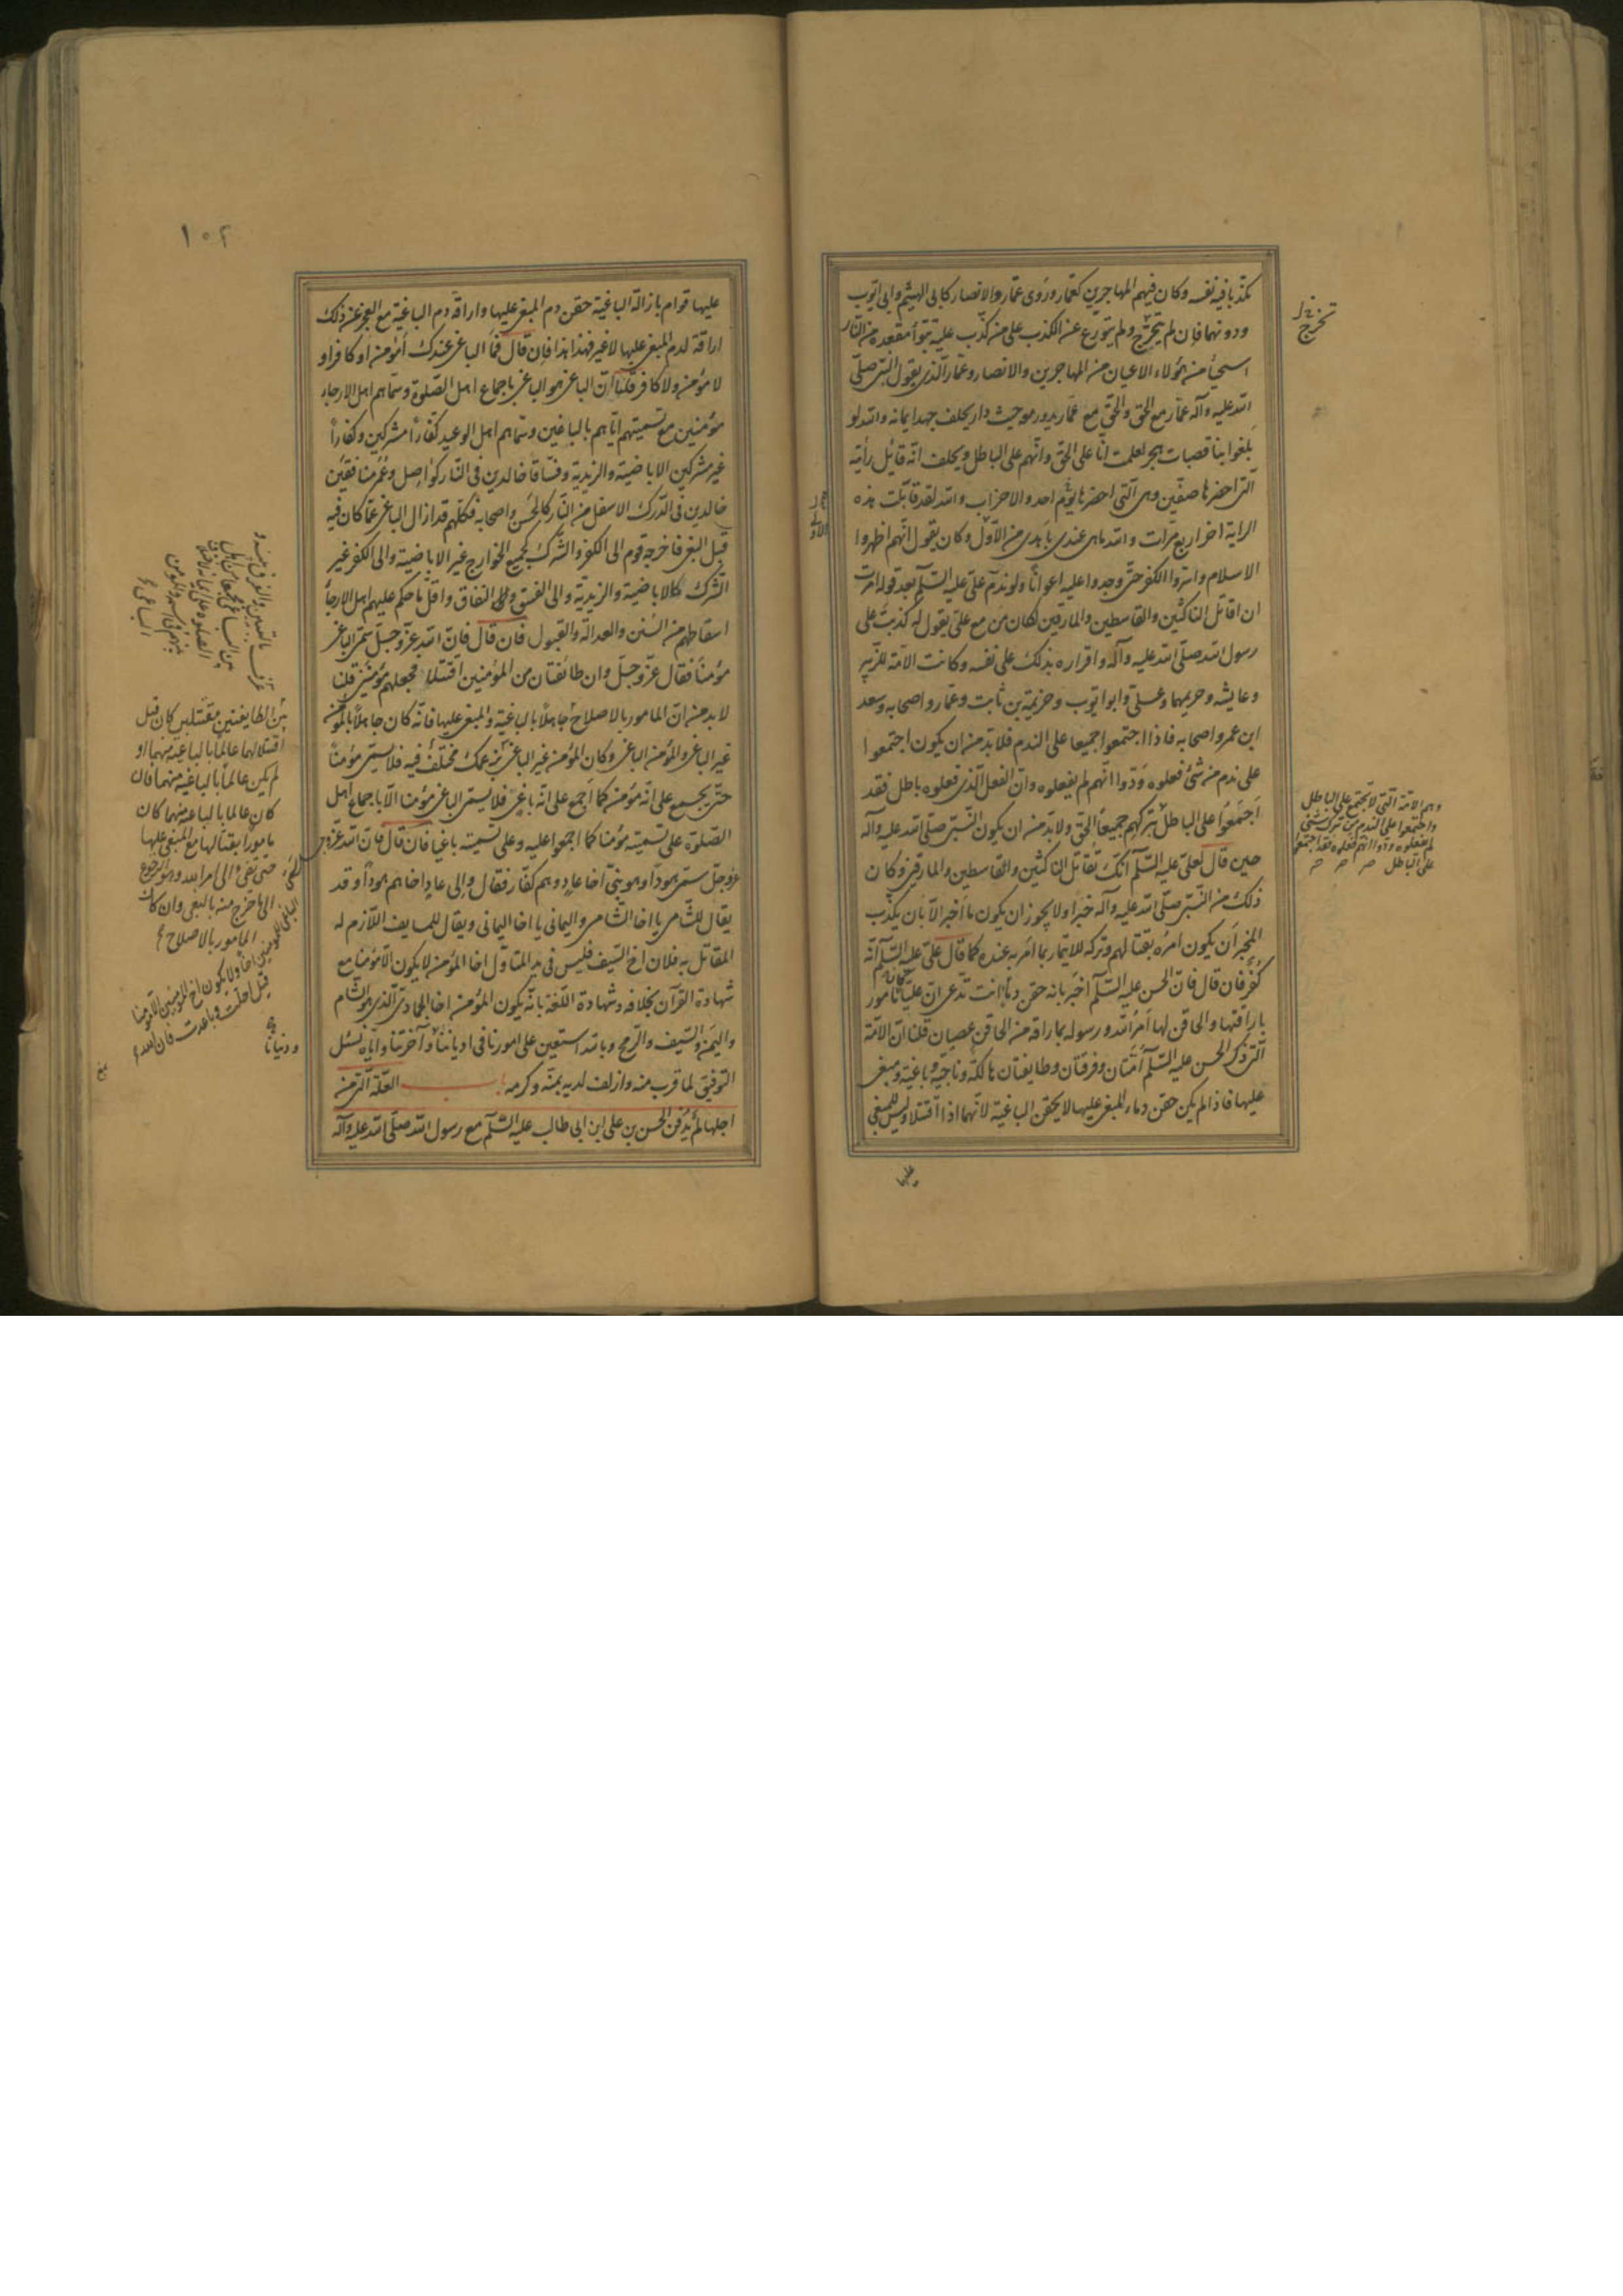 يكذبا فيه نفسه وكان فيهم المهاجرين كعمار وروى عمار والانصار كابى الهيثم وابى ايوب
ودونهما فان لم يتحرج ولم يتورع عن الكذب على من كذب عليه تبوأ مقعده من النار
استحيأ من هؤلاء الاعيان من المهاجرين والانصار وعمار الذى يقول النبى صلى
الله عليه وآله عمار مع الحق والحق مع عمار يدور معه حيث دار يحلف جهد ايمانه والله لو
بلغوا بنا قصبات هجر لعلمت انا على الحق وانهم على الباطل ويحلف انه قاتل رأيته
التى احضرها صفين وهى التى احضرها يوم احد والاحزاب والله لقد قاتلت هذه
الراية اخر اربع مرات والله ما هى عندى باهدى من الاول وكان يقول انهم اظهروا
الاسلام واسروا الكفر حتى وجدوا عليه اعوانا ولو ندم على عليه السلم بعد قوله امرت
ان اقاتل الناكثين والقاسطين والمارقين لكان من مع على يقول له كذبت على
رسول الله صلى الله عليه وآله واقراره بذلك على نفسه وكانت الامة للزبير
وعايشه وحزبهما وعلى وابو ايوب وخزيمة بن ثابت وعمار واصحابه وسعد
ابن عمر واصحابه فاذا اجتمعوا جميعا على الندم فلا بد من ان يكون اجتمعوا
على ندم من شئ فعلوه ودوا انهم لم يفعلوه وان الفعل الذى فعلوه باطل فقد
اجتمعوا على الباطل بتركهم جميعا الحق ولا بد من ان يكون النبى صلى الله عليه وآله
حين قال لعلى عليه السلم انك تقاتل الناكثين والقاسطين والمارقين وكان
ذلك من النبى صلى الله عليه وآله خبرا ولا يجوز ان يكون ما اخبر الا بان يكذب
المخبر ان يكون امره بقتالهم وتركه للايتمار بما امر به عنده كما قال على عليه السلم انه
كفر فان قال فان الحسن عليه السلم اخبر بانه حقن دمًا انت تدعى ان عليا كان مامور
باراقتها والحاقن لما امر الله ورسوله باراقه من الحاقن عصيان قلنا ان الامة
التى ذكر الحسن عليه السلم امتان وفرقتان وطايفتان هالكة وناجية وباغية ومبغى
عليها فاذا لم يكن حقن دماء المبغى عليها الا بحقن الباغية لانهما اذا اقتتلا وليس للمبغى
عليها
تحرج
الاولى
وهم الامة التى لا تجتمع على الباطل
واجتمعوا على الندم من ترك شئ
لم يفعلوه ودوا انهم فعلوه فقد اجتمعوا
على الباطل
١٠٢
عليها قوام بازالة الباغية حقن دم المبغى عليها واراقة دم الباغية مع العجز عن ذلك
اراقة لدم المبغى عليها لا غير فهذا هذا فان قال فما الباغى عندك أمؤمن او كافر او
لا مؤمن ولا كافر قلنا ان الباغى هو الباغى باجماع اهل الصلوة وسماهم اهل الارجاء
مؤمنين مع تسميتهم اياهم بالباغين وسماهم اهل الوعيد كفارا مشركين وكفارا
غير مشركين الاباضية والزيدية وفساقا خالدين فى النار كواصل وعمر ومنافقين
خالدين فى الدرك الاسفل من النار كالحسن واصحابه فكلهم قد ازال الباغى عما كان فيه
قبل البغى فاخرجه قوم الى الكفر والشرك كجميع الخوارج غير الاباضية والى الكفر غير
الشرك كالاباضية والزيدية والى الفسق والى النفاق واقل ما حكم عليهم اهل الارجأ
اسقاطهم من السنن والعدالة والقبول فان قال فان الله عز وجل سمى الباغى
مؤمنا فقال عز وجل وان طائفتان من المؤمنين اقتتلا فجعلهم مؤمنين قلنا
لابد من ان المامور بالاصلاح جاهلا بالباغية والمبغى عليها فانه كان جاهلا بالمؤمن
غير الباغى والمؤمن الباغى وكان المؤمن غير الباغى عندك مختلف فيه فلا يسمى مؤمنا
حتى يجمع على انه مؤمن كما اجمع على انه باغى فلا يسمى الباغى مؤمنا الا باجماع اهل
الصلوة على تسميته مؤمنا كما اجمعوا عليه وعلى تسميته باغيا فان قال فان الله عز وجل
عز وجل سمى هودا وهو نبى اخا عاد وهم كفار فقال والى عاد اخاهم هودا وقد
يقال للشامى يا اخا الشامى واليمانى يا اخا اليمانى ويقال للمسايف اللازم له
المقاتل به فلان اخ السيف فليس فى يد المتاول اخا المؤمن لا يكون الا مؤمنا مع
شهادة القرآن بخلافه وشهادة اللغة بانه يكون المؤمن اخا الجمادى الذى هو الشام
واليمن والسيف والرمح وبالله استعين على امورنا فى ادياننا وآخرتنا واياه نسئل
التوفيق لما قرب منه وازلف لديه بمنه وكرمه العلة التى من
اجلها لم يدفن الحسن بن على ابن ابى طالب عليه السلم مع رسول الله صلى الله عليه وآله
بين الطايفتين مقتتلين كان قبل
اقتتالهما عالما بالباغية منهما او
لم يكن عالما بالباغيه منهما فان
كان عالما بالباغيه منهما كان
مامورا بقتالها مع المبغى عليها
حتى تفئ الى امر الله وهو الرجوع
الى ما خرج منه بالبغى وان كان
المامور بالاصلاح
ودنيانا